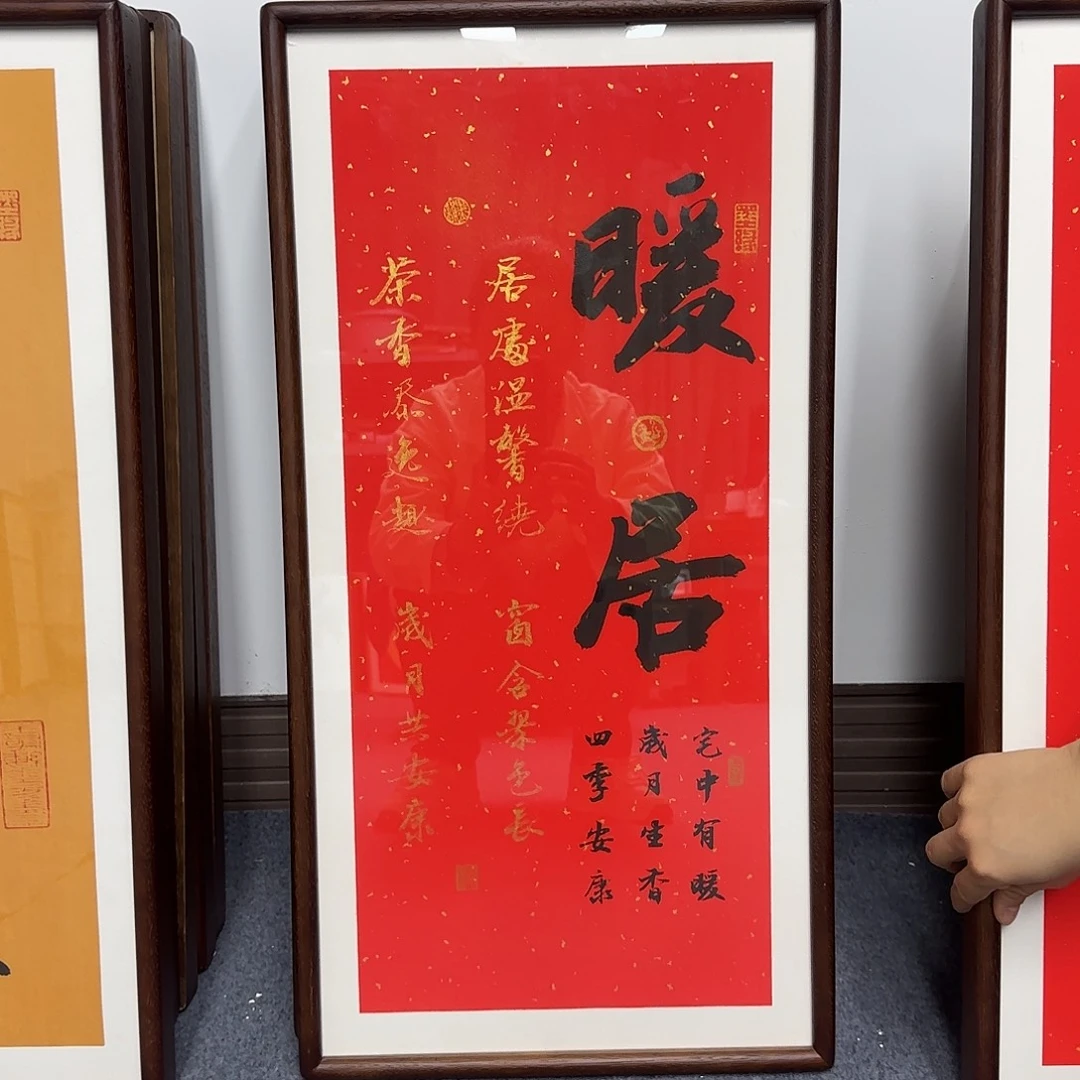 暖居
宅中有暖
歲月生香
四季安康
居處溫馨繞
窗含翠色長
茶香添逸趣
歲月共安康